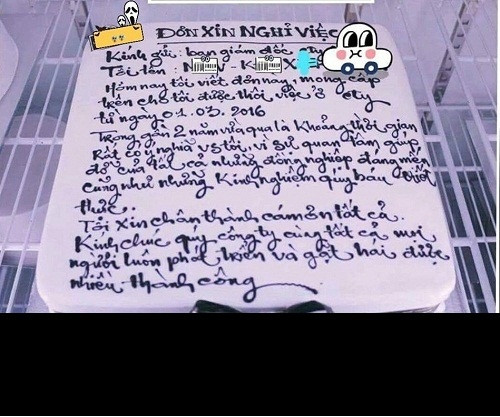 ĐƠN XIN NGHỈ VIỆC
Kính gửi: ban giám đốc
Tôi tên: N - K X
Hôm nay tôi viết đơn này, mong cấp
trên cho tôi được thôi việc ở cty
từ ngày 01.03.2016
Trong gần 2 năm vừa qua là khoảng thời gian
Rất có ý nghĩa với tôi, vì sự quan tâm giúp
đỡ của tất cả những đồng nghiệp đáng mến
cũng như những kinh nghiệm quý báu
thức.
Tôi xin chân thành cám ơn tất cả.
Kính chúc quý công ty cùng tất cả mọi
người luôn phát triển và gặt hái được
nhiều thành công